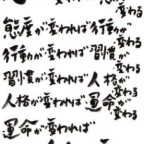 変わる
態度が変われば行動が変わる
行動が変われば習慣が変わる
習慣が変われば人格が変わる
人格が変われば運命が変わる
運命が変われば